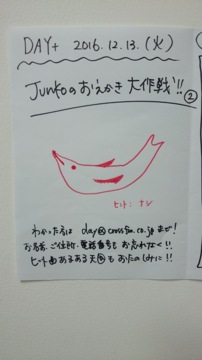 DAY+ 2016.12.13.(火)
Junkoのおえかき大作戦!!
②
ヒント: ナシ
わかった方は day@crossfm.co.jp まで!
お名前、ご住所、電話番号もお忘れなく!!
ヒント曲あるある天国もおたのしみに!!